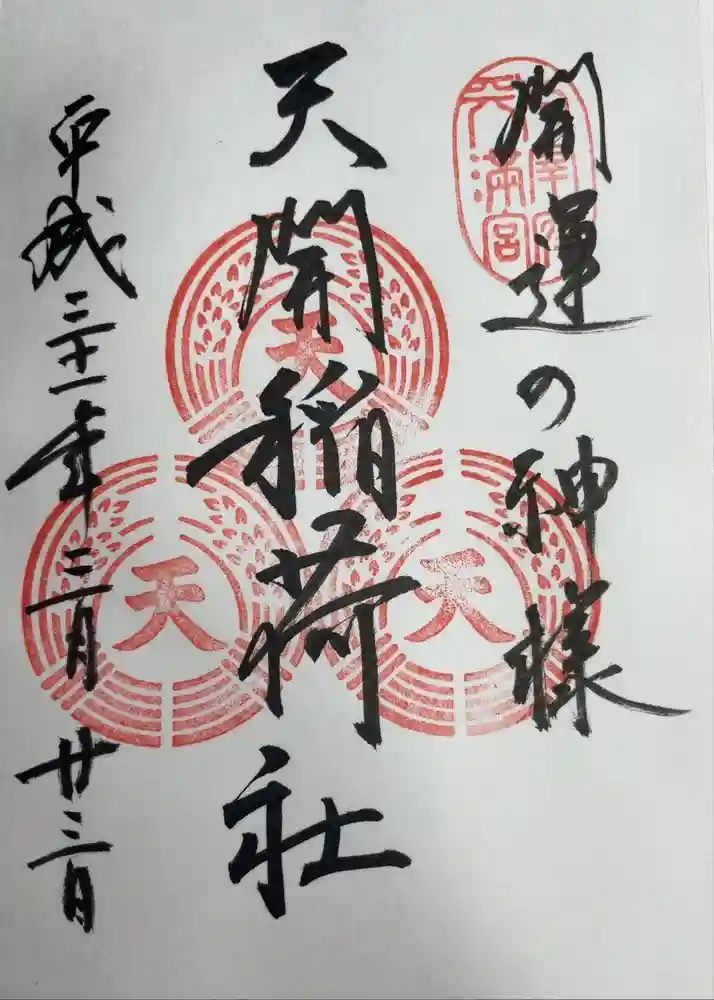 開運の神様
天満宮
天開稲荷社
天
天
天
平成三十一年三月廿三日